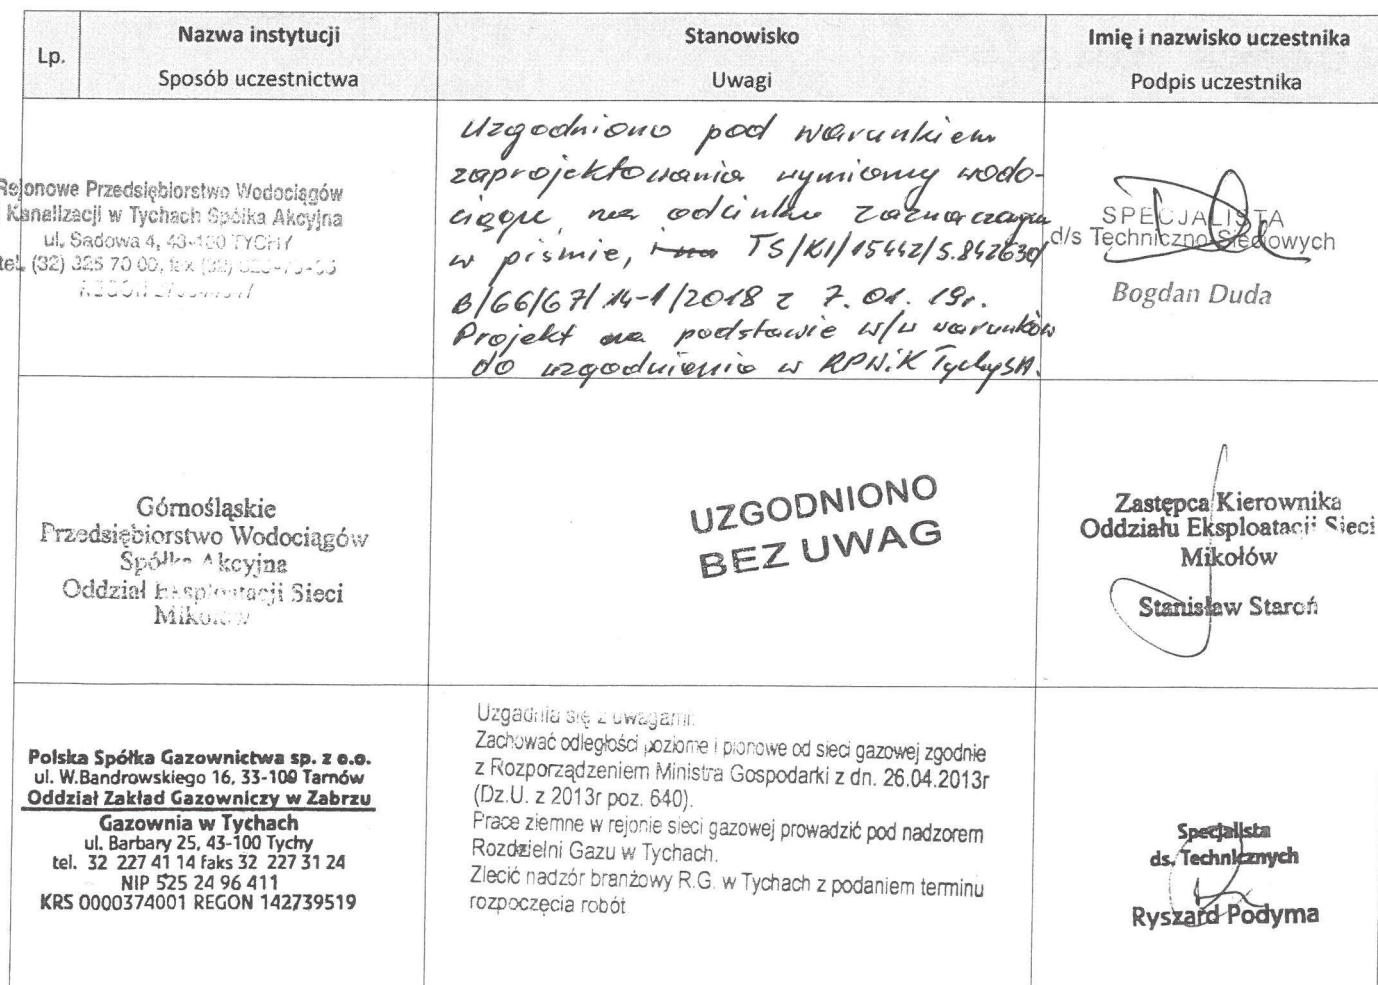 Lp.
Nazwa instytucji
Sposób uczestnictwa
Stanowisko
Uwagi
Imię i nazwisko uczestnika
Podpis uczestnika
Rejonowe Przedsiębiorstwo Wodociągów
i Kanalizacji w Tychach Spółka Akcyjna
ul. Sadowa 4, 43-100 TYCHY
tel. (32) 325 70 00, fax (32)
REGON
Uzgodniono pod warunkiem
zaprojektowania wymiany wodo-
ciągu na odcinku zaznaczonym
w piśmie, TS/KI/15442/S.842630/
B/66/67/14-1/2018 z 7.01.19r.
Projekt na podstawie w/w warunków
do uzgodnienia w RPWiK Tychy SA.
SPECJALISTA
d/s Techniczno-Sieciowych
Bogdan Duda
Górnośląskie
Przedsiębiorstwo Wodociągów
Spółka Akcyjna
Oddział Eksploatacji Sieci
Mikołów
UZGODNIONO
BEZ UWAG
Zastępca Kierownika
Oddziału Eksploatacji Sieci
Mikołów
Stanisław Staroń
Polska Spółka Gazownictwa sp. z o.o.
ul. W.Bandrowskiego 16, 33-100 Tarnów
Oddział Zakład Gazowniczy w Zabrzu
Gazownia w Tychach
ul. Barbary 25, 43-100 Tychy
tel. 32 227 41 14 faks 32 227 31 24
NIP 525 24 96 411
KRS 0000374001 REGON 142739519
Uzgadnia się z uwagami:
Zachować odległości poziome i pionowe od sieci gazowej zgodnie
z Rozporządzeniem Ministra Gospodarki z dn. 26.04.2013r
(Dz.U. z 2013r poz. 640).
Prace ziemne w rejonie sieci gazowej prowadzić pod nadzorem
Rozdzielni Gazu w Tychach.
Zlecić nadzór branżowy R.G. w Tychach z podaniem terminu
rozpoczęcia robót
Specjalista
ds. Technicznych
Ryszard Podyma